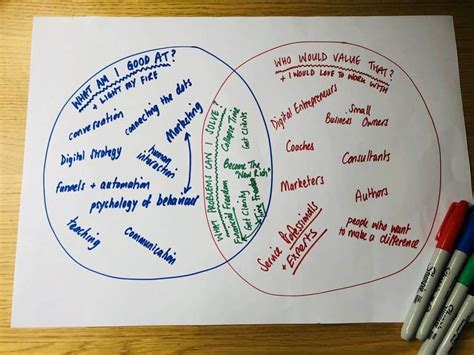 WHAT AM I GOOD AT?
+ LIGHT MY FIRE
conversation
connecting the dots
Marketing
Digital strategy
human
interaction
funnels + automation
psychology of behaviour
teaching
Communication
WHAT PROBLEMS CAN I SOLVE?
Collapse Time
Get Clients
Become The
"New Rich"
Financial Freedom
+ Time Freedom
Get Clarity
WHO WOULD VALUE THAT?
+ I WOULD LOVE TO WORK WITH
Digital Entrepreneurs
Small
Business Owners
Coaches
Consultants
Marketers
Authors
Service Professionals
+ Experts
people who want
to make a difference
Sharpie